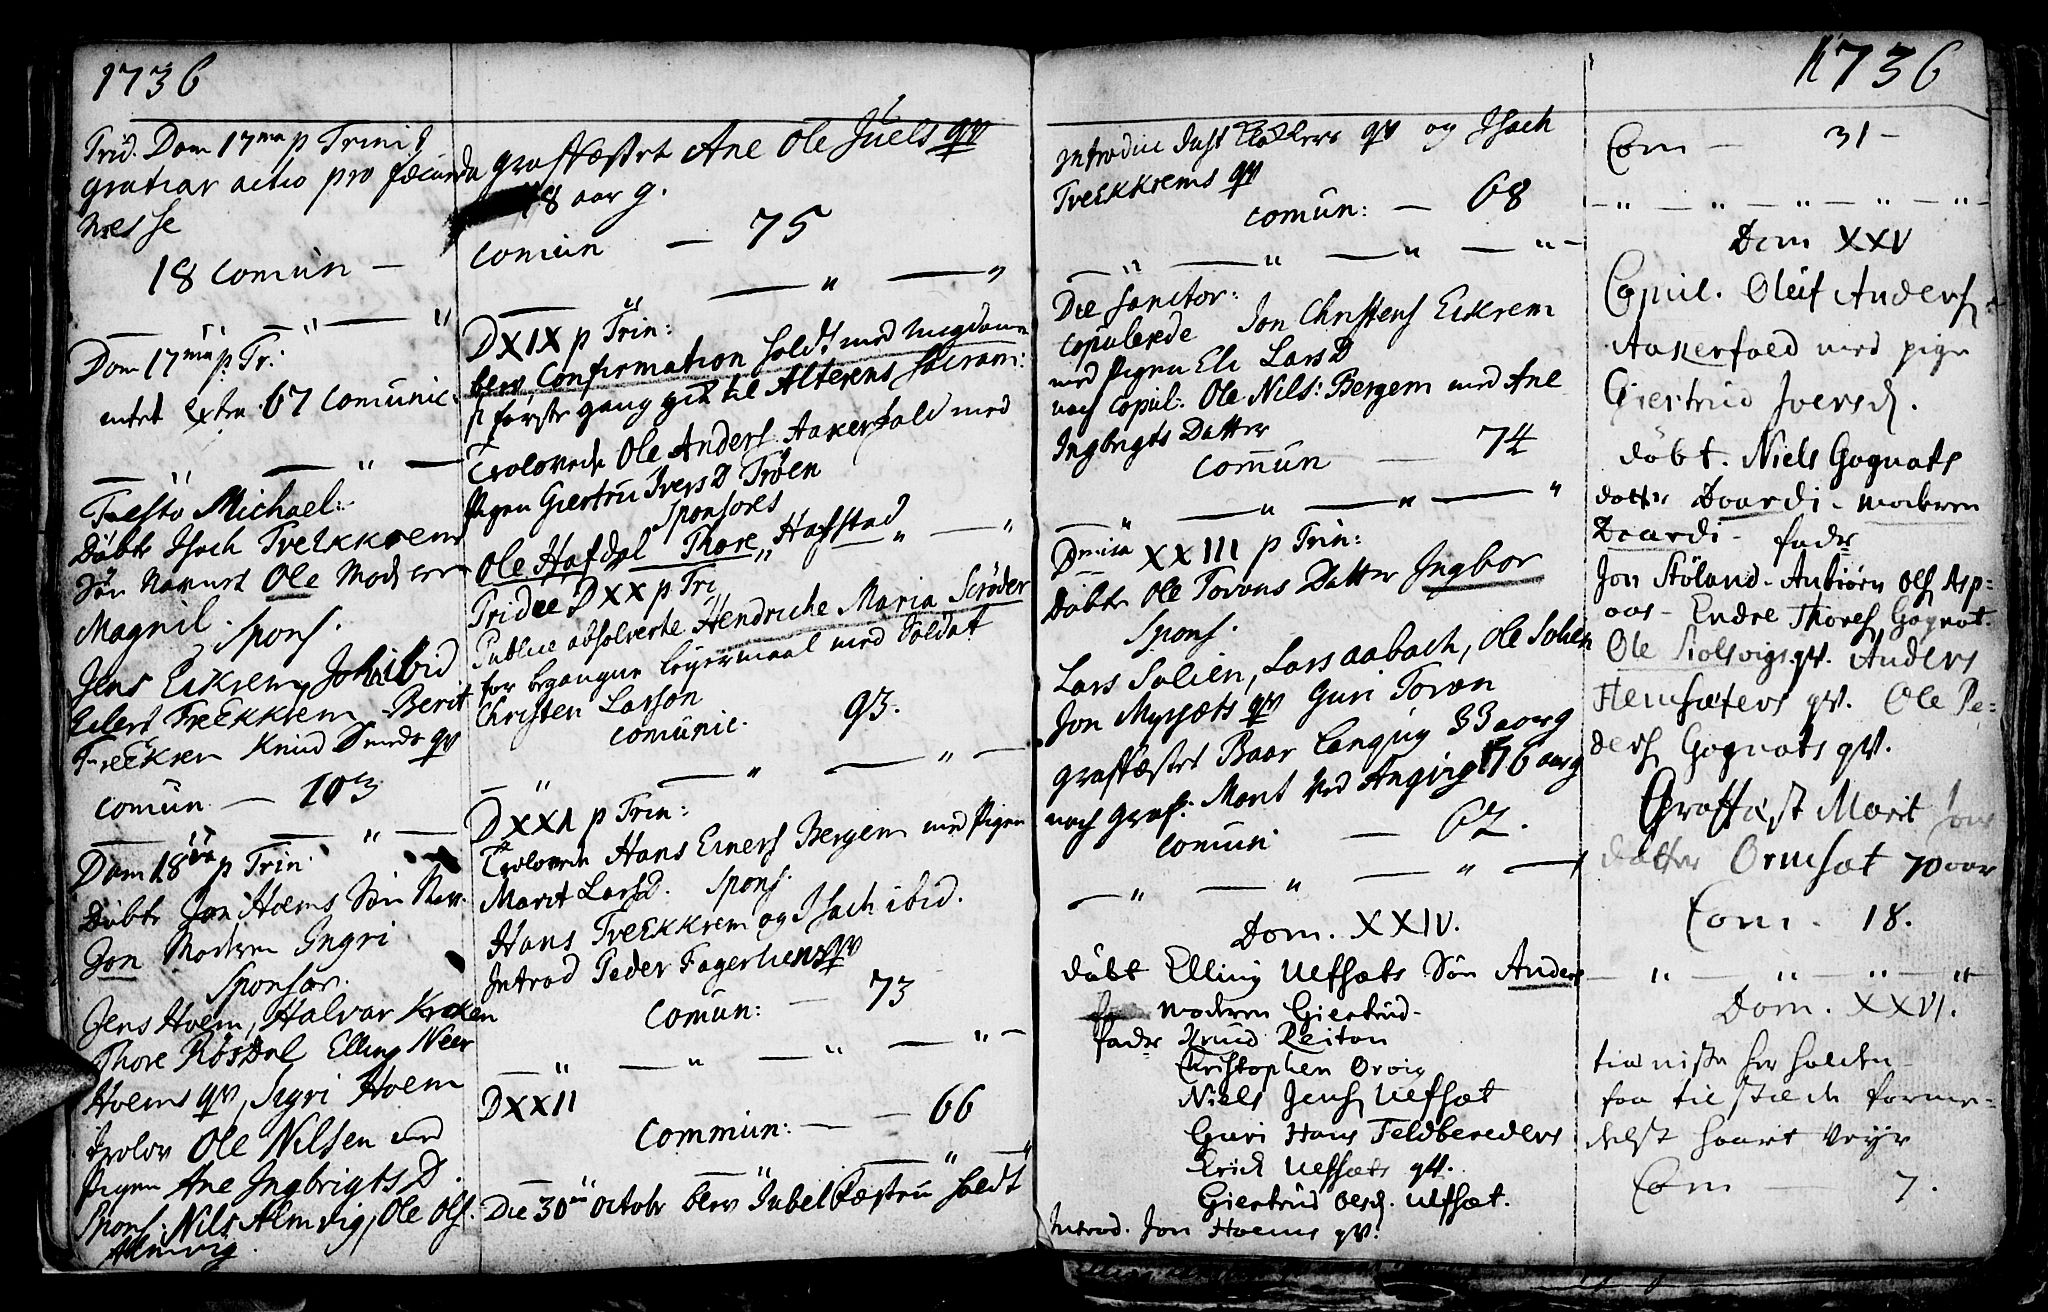 1736
Trid. Dom 17ma p Trinit
gratiar actio pro fæcunda
Messe
18 comun —
Dom 17ma p Tr:
extra 67 comunic.
Festo Michael:
Døbte Isach Tveikkrems
Søn navnet Ole Moderen
Magnil. Spons.
Jens Eikrem, Joh ibid
Eilert Treekkrem Berit
Treekrem Knud Smeds qv
comun — 103
Dom 18va p Trin
Døbte Jon Hoems Søn Nav.
Jon Moderen Ingri
Sponsor.
Jens Hoem, Halvar Kraken
Thore Røsdal Elling Neer
Hoems qv, Sigri Hoem
trolov Ole Nilsen med
Pigen Ane Ingbrigts D.
Spons: Nils Almvig, Ole Ols.
Almvig.
graffæstet Ane Ole Juels qv
78 aar g.
comun — 75
D XIX p Trin:
blev Confirmation holdt med ungdomen
første gang gik til Alterens Sacram:
Trolovede Ole Anders Aakerfald med
Pigen Giertru Ivers D Trøen
Sponsores
Ole Hafdal Thore Hafstad
Tridie D XX p Tri
Publice absolverte Hendriche Maria Scrøder
for begangne leyermaal med Soldat
Christen Larson
comunic. 93.
D XXI p Trin:
Trolovede Hans Einers Bergem med Pigen
Marit LarsD. Spons.
Hans Treekkrem og Isach ibid.
Introd Peder Fagerliens qv
comun: — 73
D XXII
commun: — 66
Die 30 octobr blev Jubel Festen holdt
1736
Introduc Just Klokkers qv og Isach
Tveikkrems qv
comun: — 68
Die Sanctor:
copulerede Jon Christens Eikrem
med Pigen Eli Lars D
noch copul: Ole Nils: Bergem med Ane
Ingbrigts Datter
comun — 74
Dnica XXIII p Trin:
Døbte Ole Torvns Datter Ingbor
Spons.
Lars Solien, Lars aabach, Ole Solien
Jon Myrsæts qv Guri Toren
graffæstet Baar Langug 33 aar g
noch graf: Marit ved Angvig 76 aar g
comun — 62.
Dom. XXIV.
døbt Elling Uefsæts Søn Anders
moderen Giertrud.
fadr Knud Reiton
Christophen Orvig
Niels Jens Uefsæt
Guri Hans Feldbereders
Erich Uefsæts qv.
Giertrud Olesd. Uefsæt.
Introd. Jon Hoems qv.
Com — 31 —
Dom XXV
Copul. Oluf Anders
Aakerfald med pige
Giertrud Iversd.
døbt. Niels Gagnats
datter Baardi. moderen
Baardi. fadr
Jon Støland. Anbiørn Ols Asp=
aas. Endre Thores Gagnat.
Ole Stolsvigs qv. Anders
Hemsæters qv. Ole Pe=
ders Gagnats qv.
Graffæst Marit
datter Ormsæt 70 aar
Com. 18.
Dom. XXVI.
tienniste her holden
faa tilstæde forme=
delst haart Veyr
Com — 7.